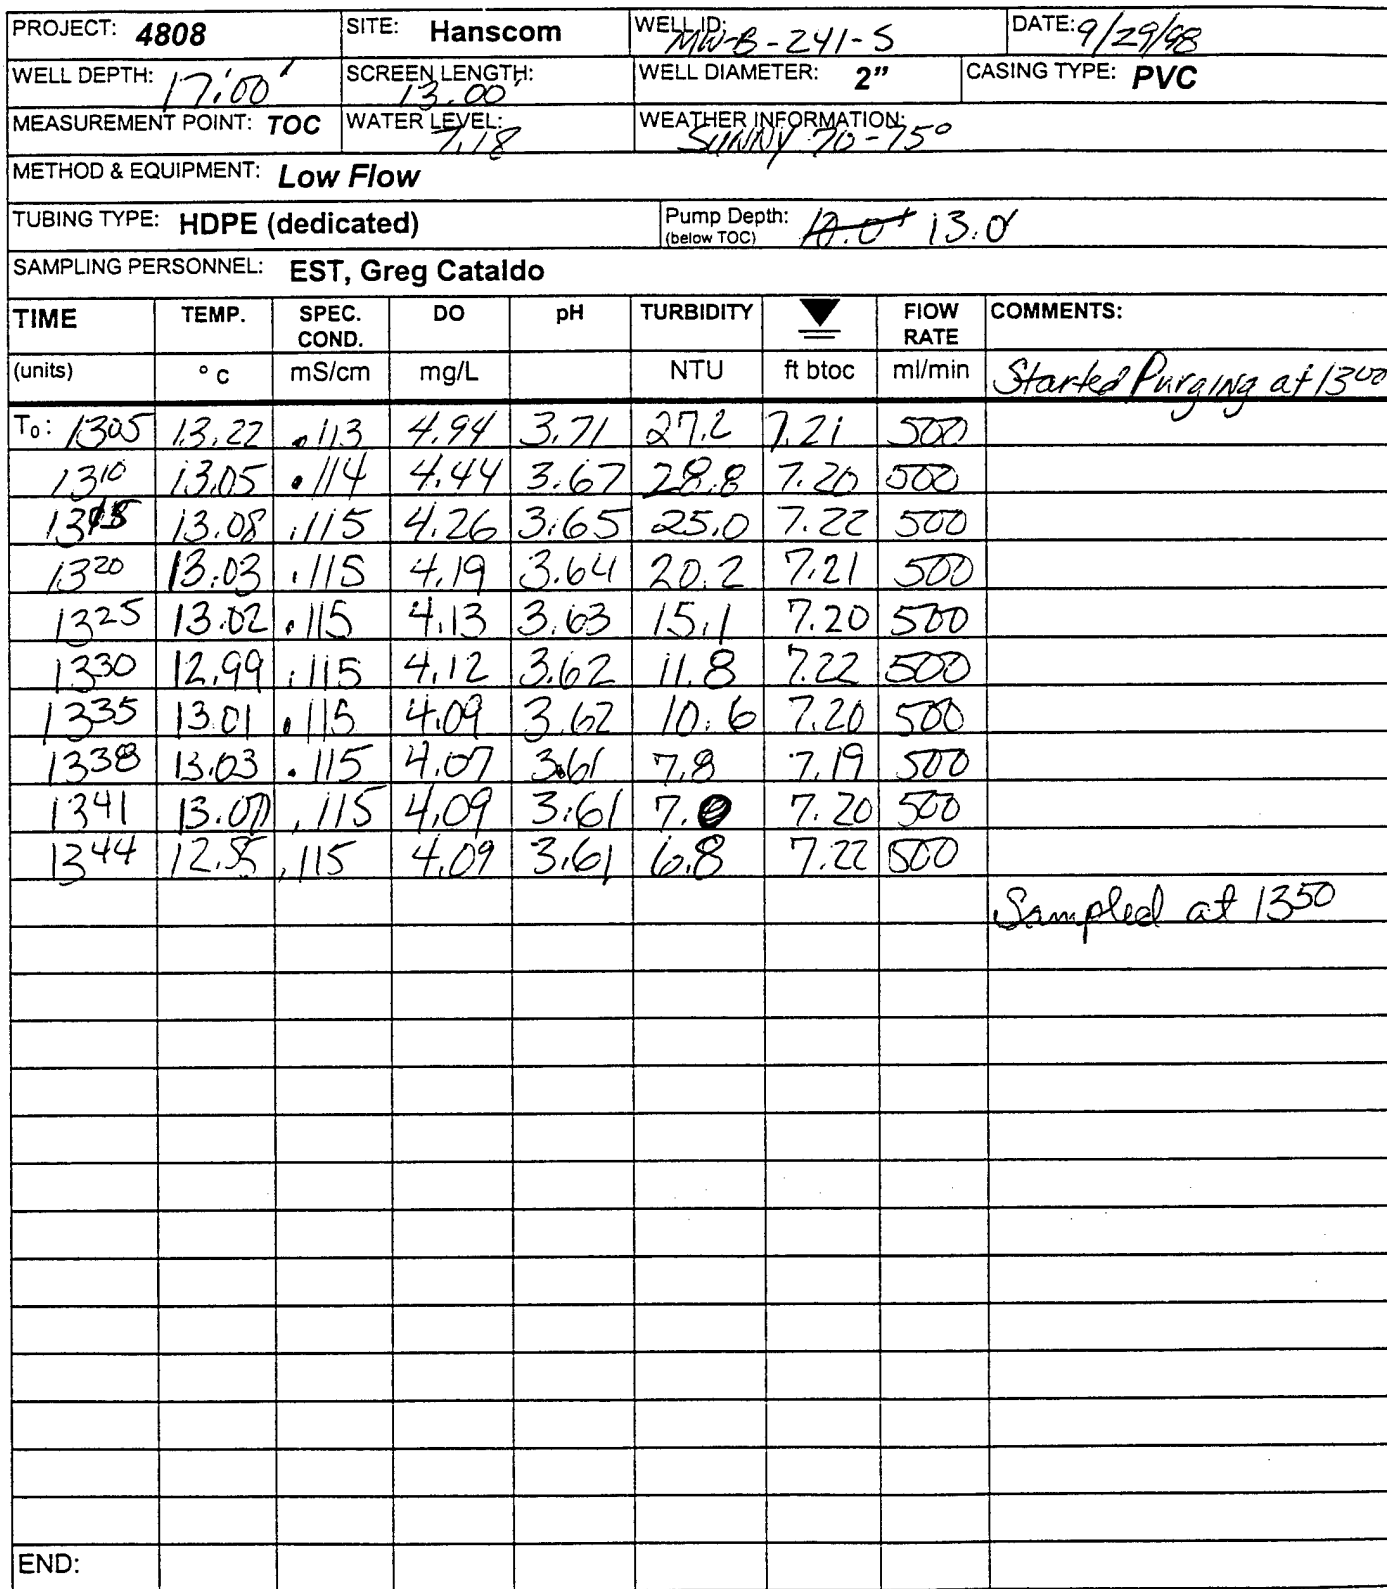 PROJECT: 4808 SITE: Hanscom WELL ID: MW-B-241-S DATE: 9/29/98
WELL DEPTH: 17.00' SCREEN LENGTH: 13.00' WELL DIAMETER: 2" CASING TYPE: PVC
MEASUREMENT POINT: TOC WATER LEVEL: 7.18 WEATHER INFORMATION: SUNNY 70-75°
METHOD & EQUIPMENT: Low Flow
TUBING TYPE: HDPE (dedicated) Pump Depth: (below TOC) 13.0'
SAMPLING PERSONNEL: EST, Greg Cataldo
TIME TEMP. SPEC. COND. DO pH TURBIDITY FlOW RATE COMMENTS:
(units) ° c mS/cm mg/L NTU ft btoc ml/min Started Purging at 1300
T0: 1305 13.22 .113 4.94 3.71 27.2 7.21 500
1310 13.05 .114 4.44 3.67 28.8 7.20 500
1315 13.08 .115 4.26 3.65 25.0 7.22 500
1320 13.03 .115 4.19 3.64 20.2 7.21 500
1325 13.02 .115 4.13 3.63 15.1 7.20 500
1330 12.99 .115 4.12 3.62 11.8 7.22 500
1335 13.01 .115 4.09 3.62 10.6 7.20 500
1338 13.03 .115 4.07 3.61 7.8 7.19 500
1341 .115 4.09 3.61 7.20 500
1344 .115 4.09 3.61 6.8 7.22 500
Sampled at 1350
END: